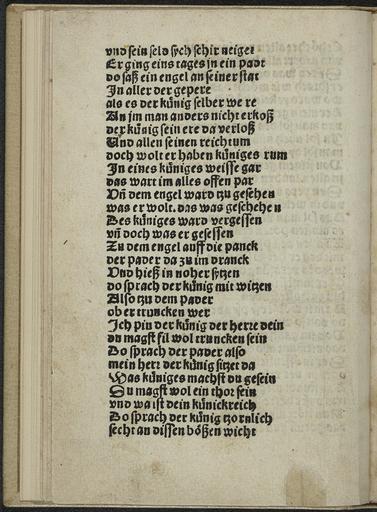 vnd sein seld sych schir neiget
Er ging eins tages in ein padt
do saß ein engel an seiner stat
In aller der gepere
als es der künig selber we re
An jm man anders nicht erkoß
der künig sein ere da verloß
Und allen seinen reichtum
doch wolt er haben küniges rum
In eines küniges weisse gar
das wart im alles offen par
Vñ dem engel ward tzu gesehen
was er wolt. das was geschehen
Des küniges ward vergessen
vñ doch was er gesessen
Zu dem engel auff die panck
der pader da zu im dranck
Vnd hieß in noher sytzen
do sprach der künig mit witzen
Also tzu dem pader
ob er truncken wer
Ich pin der künig der herre dein
du magst fil wol truncken sein
Do sprach der pader also
mein herr der künig sitzet da
Was küniges machst du gesein
Du magst wol ein thor sein
vnd wa ist dein künickreich
Do sprach der künig tzornlich
secht an dissen bößen wicht